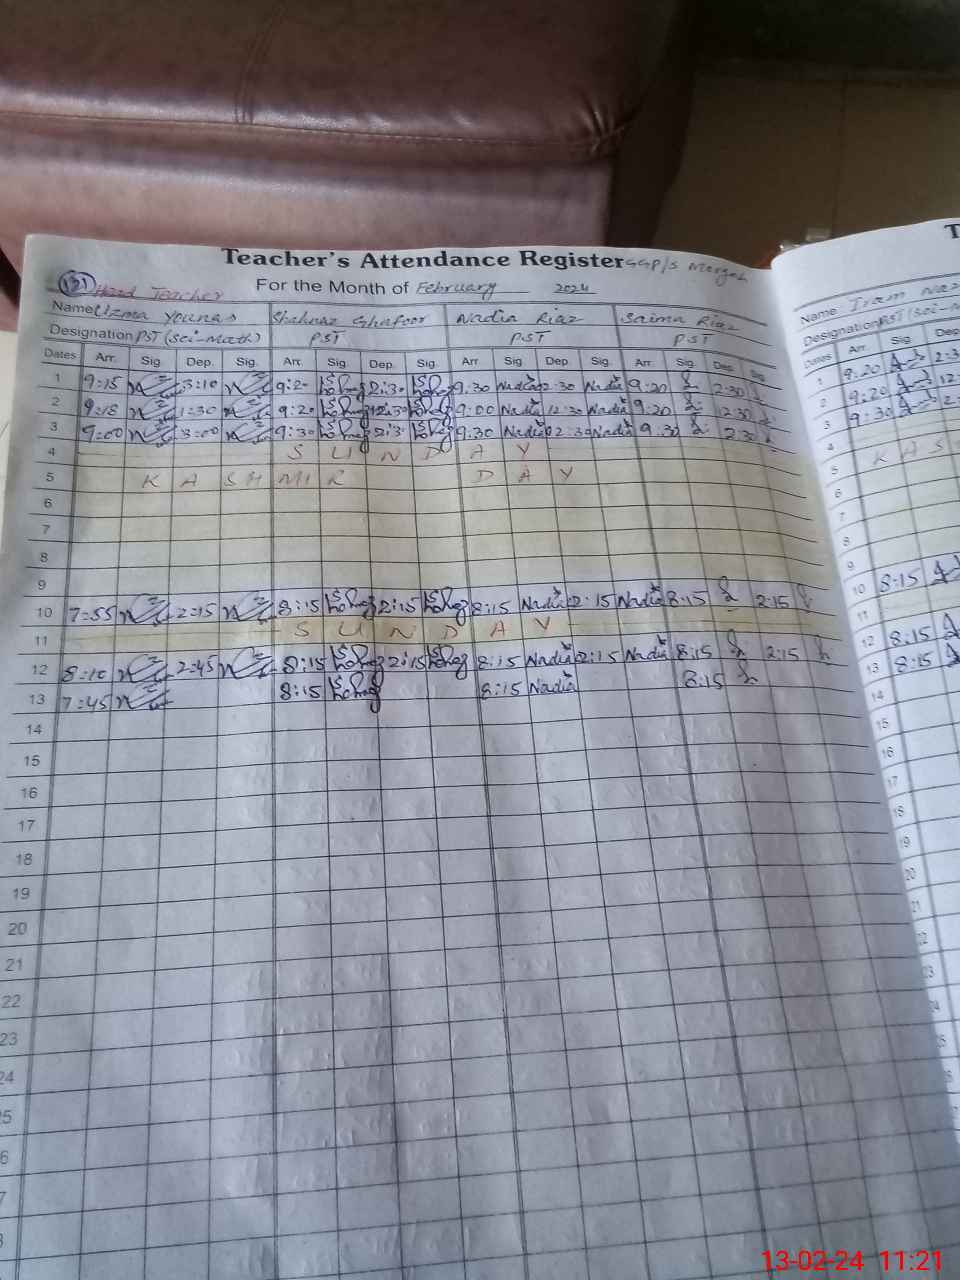 Teacher's Attendance Register GGP/S Mergah
(121) Head Teacher For the Month of February 2024
Name Uzma Younas Shahnaz Ghafoor Nadia Riaz Saima Riaz
Designation PST (Sci-Math) PST PST PST
Dates Arr. Sig. Dep. Sig. Arr. Sig. Dep. Sig. Arr. Sig. Dep. Sig. Arr. Sig. Dep. Sig.
1 9:15 3:10 9:2- 2:30 9:30 Nadia 2:30 Nadia 9:20 2:30
2 9:18 1:30 9:20 12:30 9:00 Nadia 12:30 Nadia 9:20 12:30
3 9:00 3:00 9:30 2:3 9:30 Nadia 02:30 Nadia 9:30 2:30
4 S U N D A Y
5 K A SH MI R D A Y
6
7
8
9
10 7:55 2:15 8:15 2:15 8:15 Nadia 2:15 Nadia 8:15 2:15
11 S U N D A Y
12 8:10 2:45 8:15 2:15 8:15 Nadia 2:15 Nadia 8:15 2:15
13 7:45 8:15 8:15 Nadia 8:15
14
15
16
17
18
19
20
21
22
23
24
5
6
7
T
Name Iram Naz
Designation PST (Sci-M
Dates Arr. Sig. Dep
1 9:20 2:3
2 9:20 12:
3 9:30 2:
4
5 K A S
6
7
8
9
10 8:15
11
12 8:15
13 8:15
14
15
16
17
18
19
20
21
22
23
13-02-24 11:21